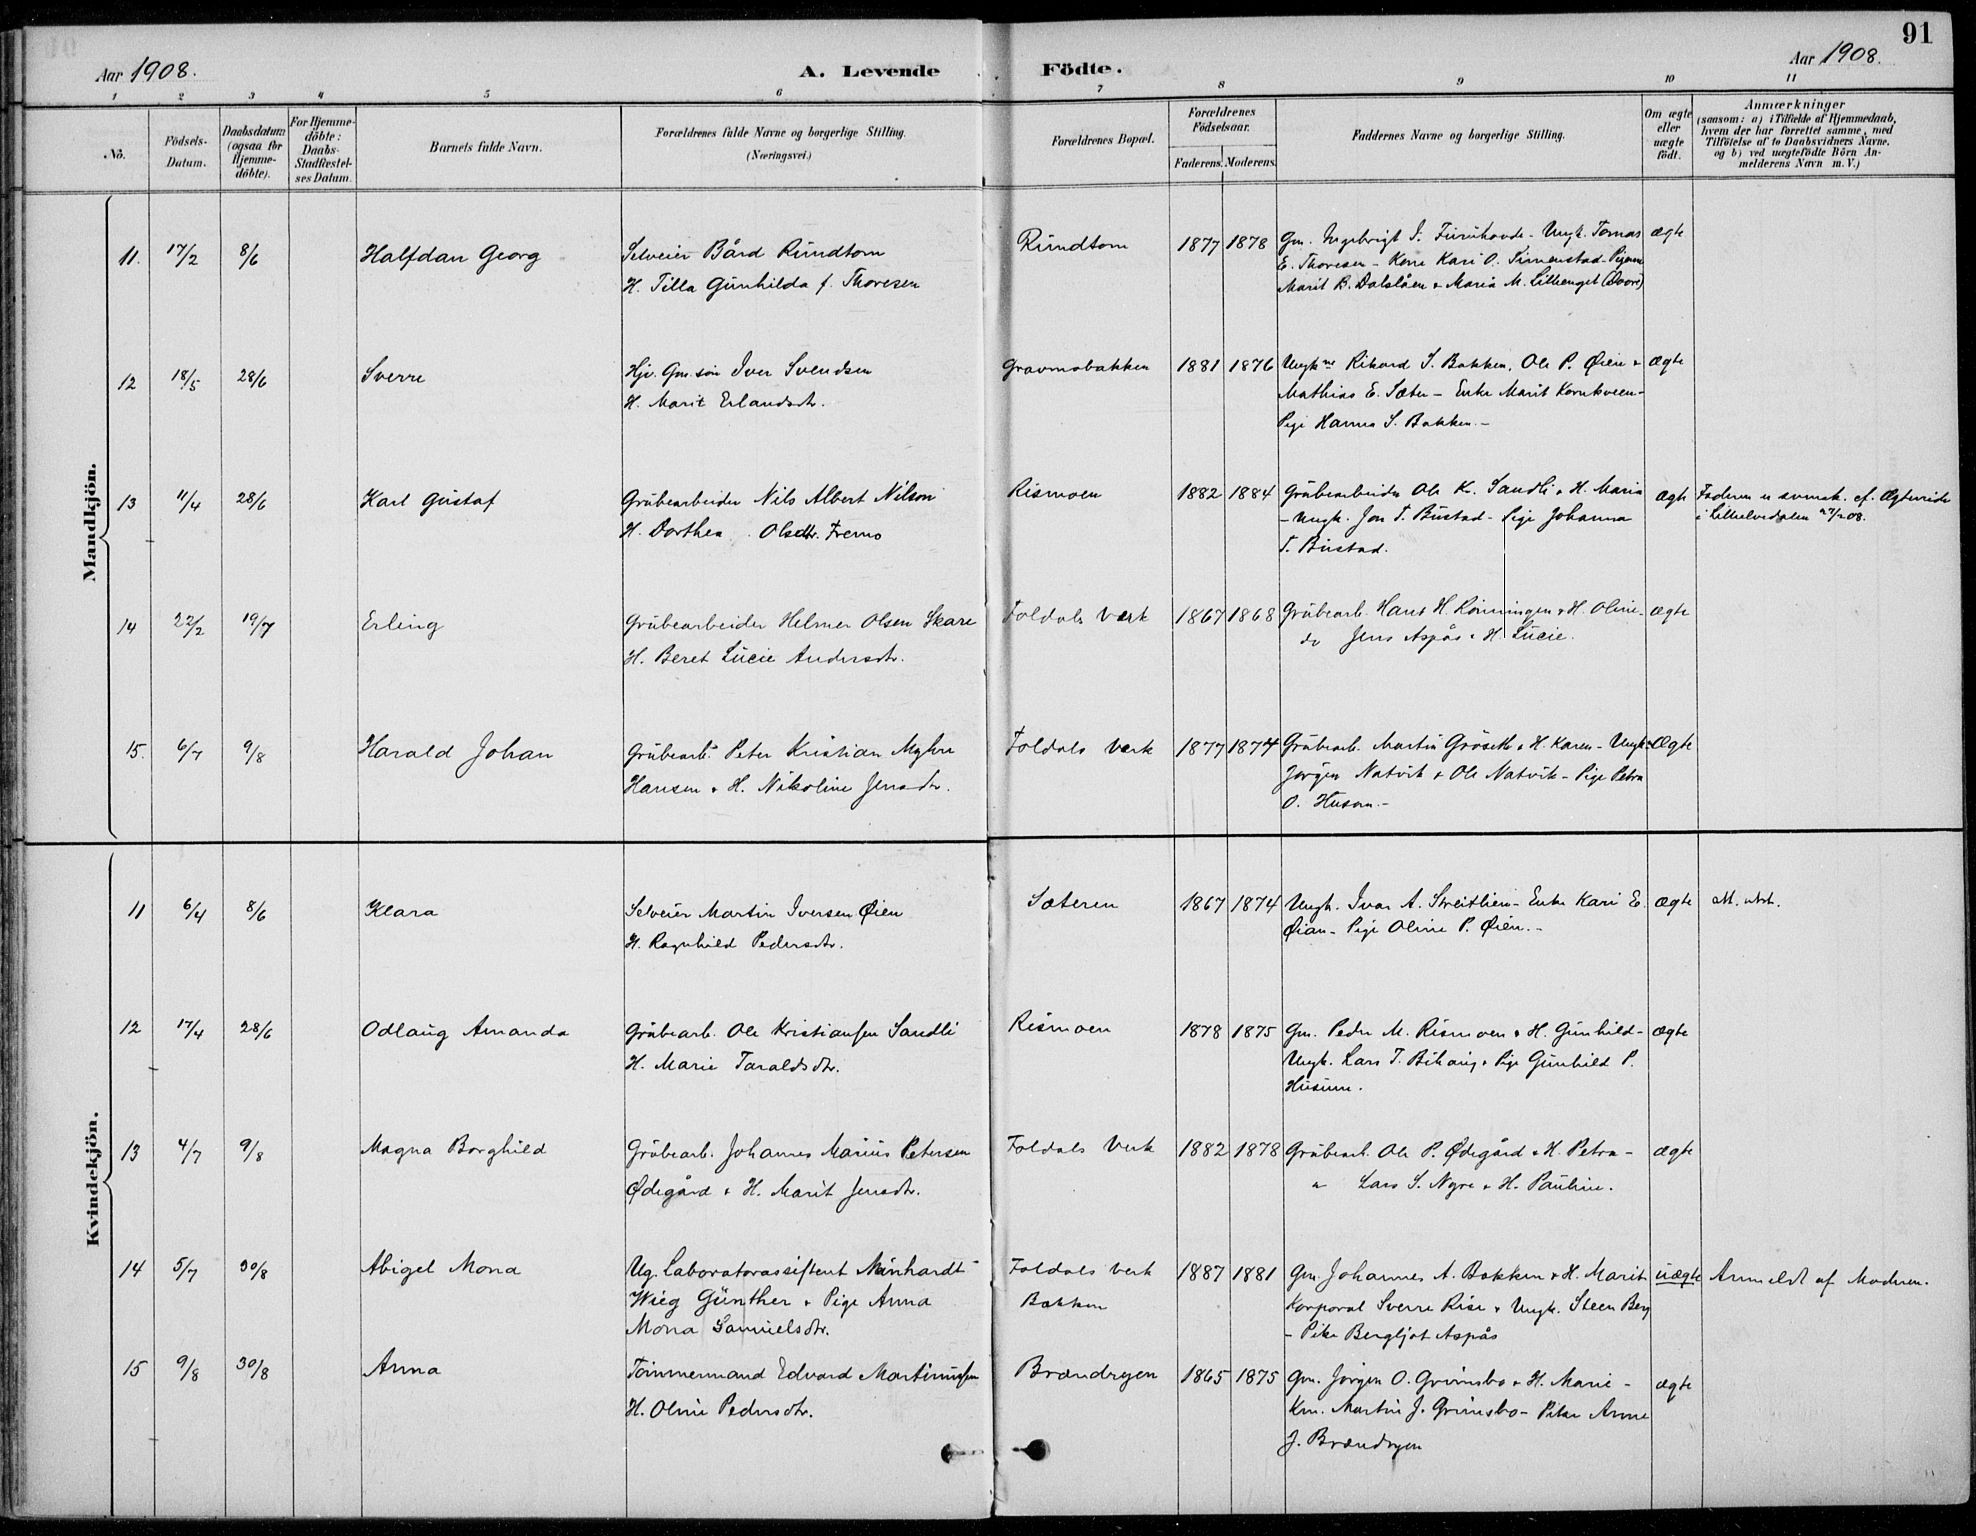 91
Aar 1908.
A. Levende Födte.
Aar 1908.
1 2 3 4 5 6 7 8 9 10 11
No.
Födsels-Datum.
Daabsdatum (ogsaa for Hjemme-döbte).
For Hjemme-döbte: Daabs-Stadfæstel-ses Datum.
Barnets fulde Navn.
Forældrenes fulde Navne og borgerlige Stilling. (Næringsvei.)
Forældrenes Bopæl.
Forældrenes Födselsaar.
Faderens. Moderens.
Faddernes Navne og borgerlige Stilling.
Om ægte eller uægte födt.
Anmærkninger
(saasom: a) i Tilfælde af Hjemmedaab,
hvem der har forrettet samme, med
Tilföielse af to Daabsvidners Navne,
og b) ved uægtefödte Börn An-
melderens Navn m. V.)
Mandkjön.
11. 17/2 8/6 Halfdan Georg Selveier Bård Rundtom Rundtom 1877 1878 Gm. Ingebrigt I. Furuhovde - Ungk. Tomas ægte
H. Tilla Gunhilda f. Thoresen E. Thoresen - Kone Kari O.
Marit B. Dalslåen & Maria M. Lillenget (Dovre)
12 18/5 28/6 Sverre Hjv. Gm. sön Iver Svendsen Gravmobakken 1881 1876 Ungk. Rikard S. Bakken, Ole P. Øien & ægte
H. Marit Erlandsdtr. Mathias E. Sæter - Enke Marit Kornkveen -
Pige Hanna S. Bakken. -
13 11/4 28/6 Karl Gustaf Grubearbeider Nils Albert Nilson Rismoen 1882 1884 Grubearbeider Ole K. Sandli & H. Maria ægte Faderen er svensk. cf.
H. Dorthea Olsdtr. Fremo - Ungk. Jon T. Bustad - Pige Johanna i Lilleelvedalen 27/2 08.
T. Bustad.
14 22/2 19/7 Erling Grubearbeider Helmer Olsen Skare Foldals Verk 1867 1868 Grubearb. Hans H. Rönningen & H. Oline - ægte
H. Beret Lucie Andersdtr. do Jens Aspås & H. Lucie.
15. 6/7 9/8 Harald Johan Grubearb. Peter Kristian Myhre Foldals Verk 1877 1874 Grubearb. Martin Gröseth & H. Karen - Ungk. Ægte
Hansen & H. Nikoline Jensdtr. Jörgen Natvik & Ole Natvik - Pige Petra
O. Husom. -
Kvindekjön.
11 6/4 8/6 Klara Selveier Martin Iversen Øien Sæteren 1867 1874 Ungk. Ivar A. Streitlien - Enke Kari E. ægte
H. Ragnhild Pedersdtr. Øian - Pige Oline P. Øien. -
12 17/4 28/6 Odlaug Amanda Grubearb. Ole Kristiansen Sandli Rismoen 1878 1875 Gm. Peder M. Rismoen & H. Gunhild - ægte
H. Marie Taraldsdtr. Ungk. Lars T. Bihaug & Pige Gunhild P.
Husum.
13 4/7 9/8 Magna Borghild Grubearb. Johannes Marius Petersen Foldals Verk 1882 1878 Grubearb. Ole P. Ødegård & H. Petra - ægte
Ødegård & H. Marit Jensdtr. " Lars S. Nyre & H. Pauline.
14 5/7 30/8 Abigel Mona Ug. Laboratorassistent Meinhardt Foldals Verk 1887 1881 Gm. Johannes A. Bakken & H. Marit uægte Anmeldt af Moderen.
Wieg Günther & Pige Anna Bakken Korporal Sverre Rise & Ungk. Steen Berg
Mona Samuelsdtr. - Pike Bergljot Aspås
15 9/8 30/8 Anna Tömmermand Edvard Martinussen Brændryen 1865 1875 Gm. Jörgen O. Grimsbo & H. Marie - ægte
H. Oline Pedersdtr. Km. Martin J. Grimsbo - Pike Anne
J. Brændryen